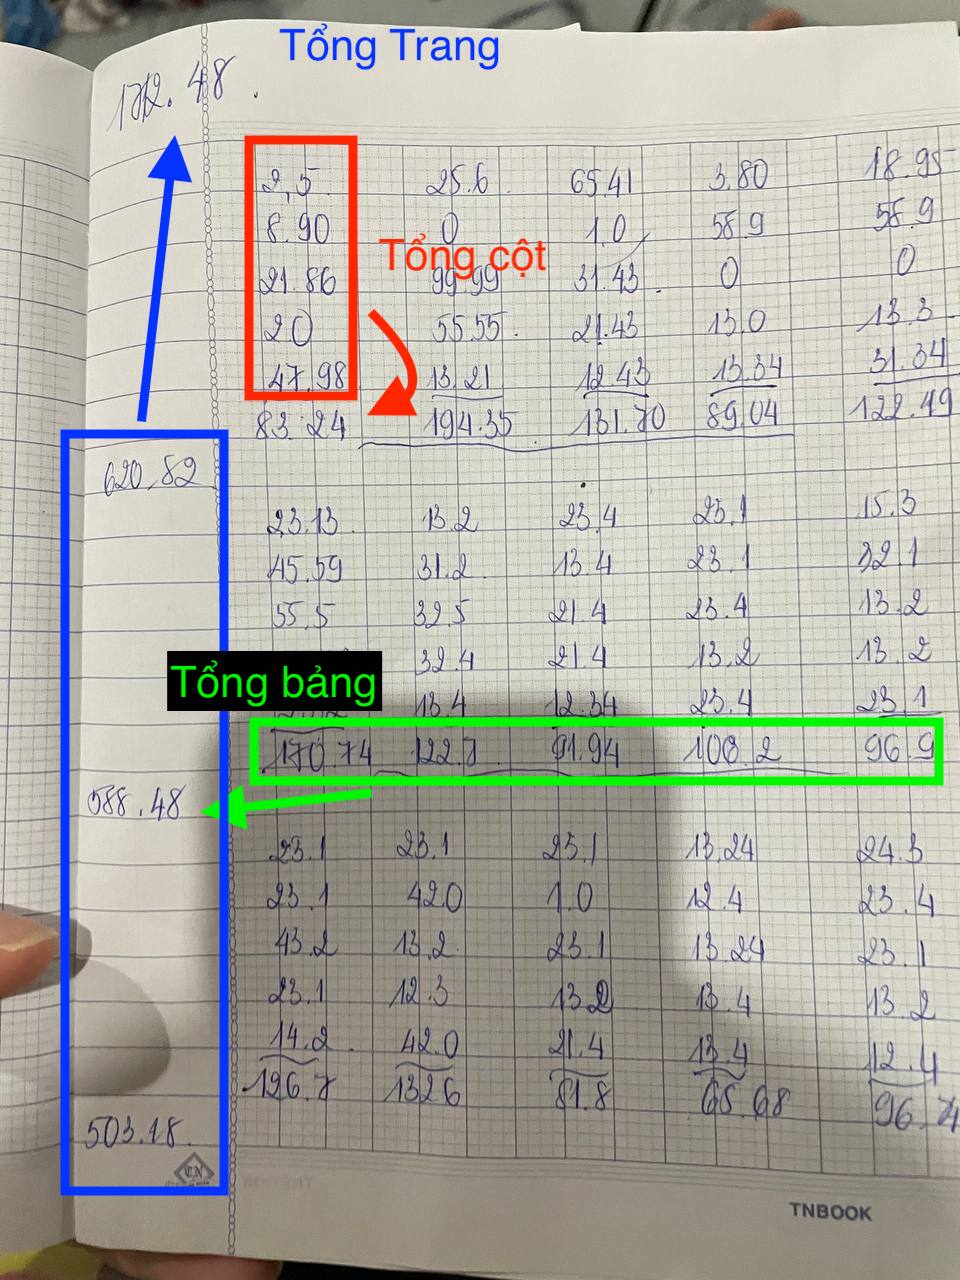 Tổng Trang
1712.48.
2,5 25.6 65.41 3.80 18.95
8.90 0 1.0 58.9 58.9
Tổng cột
21.86 99.99 31.43 0 0
2.0 55.55 21.43 13.0 13.3
47.98 13.21 12.43 13.34 31.34
83.24 194.35 131.70 89.04 122.49
620.82
23.13 13.2 23.4 23.1 15.3
45.59 31.2 13.4 23.1 32.1
55.5 32.5 21.4 23.4 13.2
32.4 21.4 13.2 13.2
Tổng bảng
13.4 12.34 23.4 23.1
170.74 122.7 91.94 106.2 96.9
588.48
23.1 23.1 23.1 13.24 24.3
23.1 42.0 1.0 12.4 23.4
43.2 13.2 23.1 13.24 23.1
23.1 12.3 13.2 13.4 13.2
14.2 42.0 21.4 13.4 12.4
126.7 132.6 81.8 65.68 96.4
503.18
TNBOOK